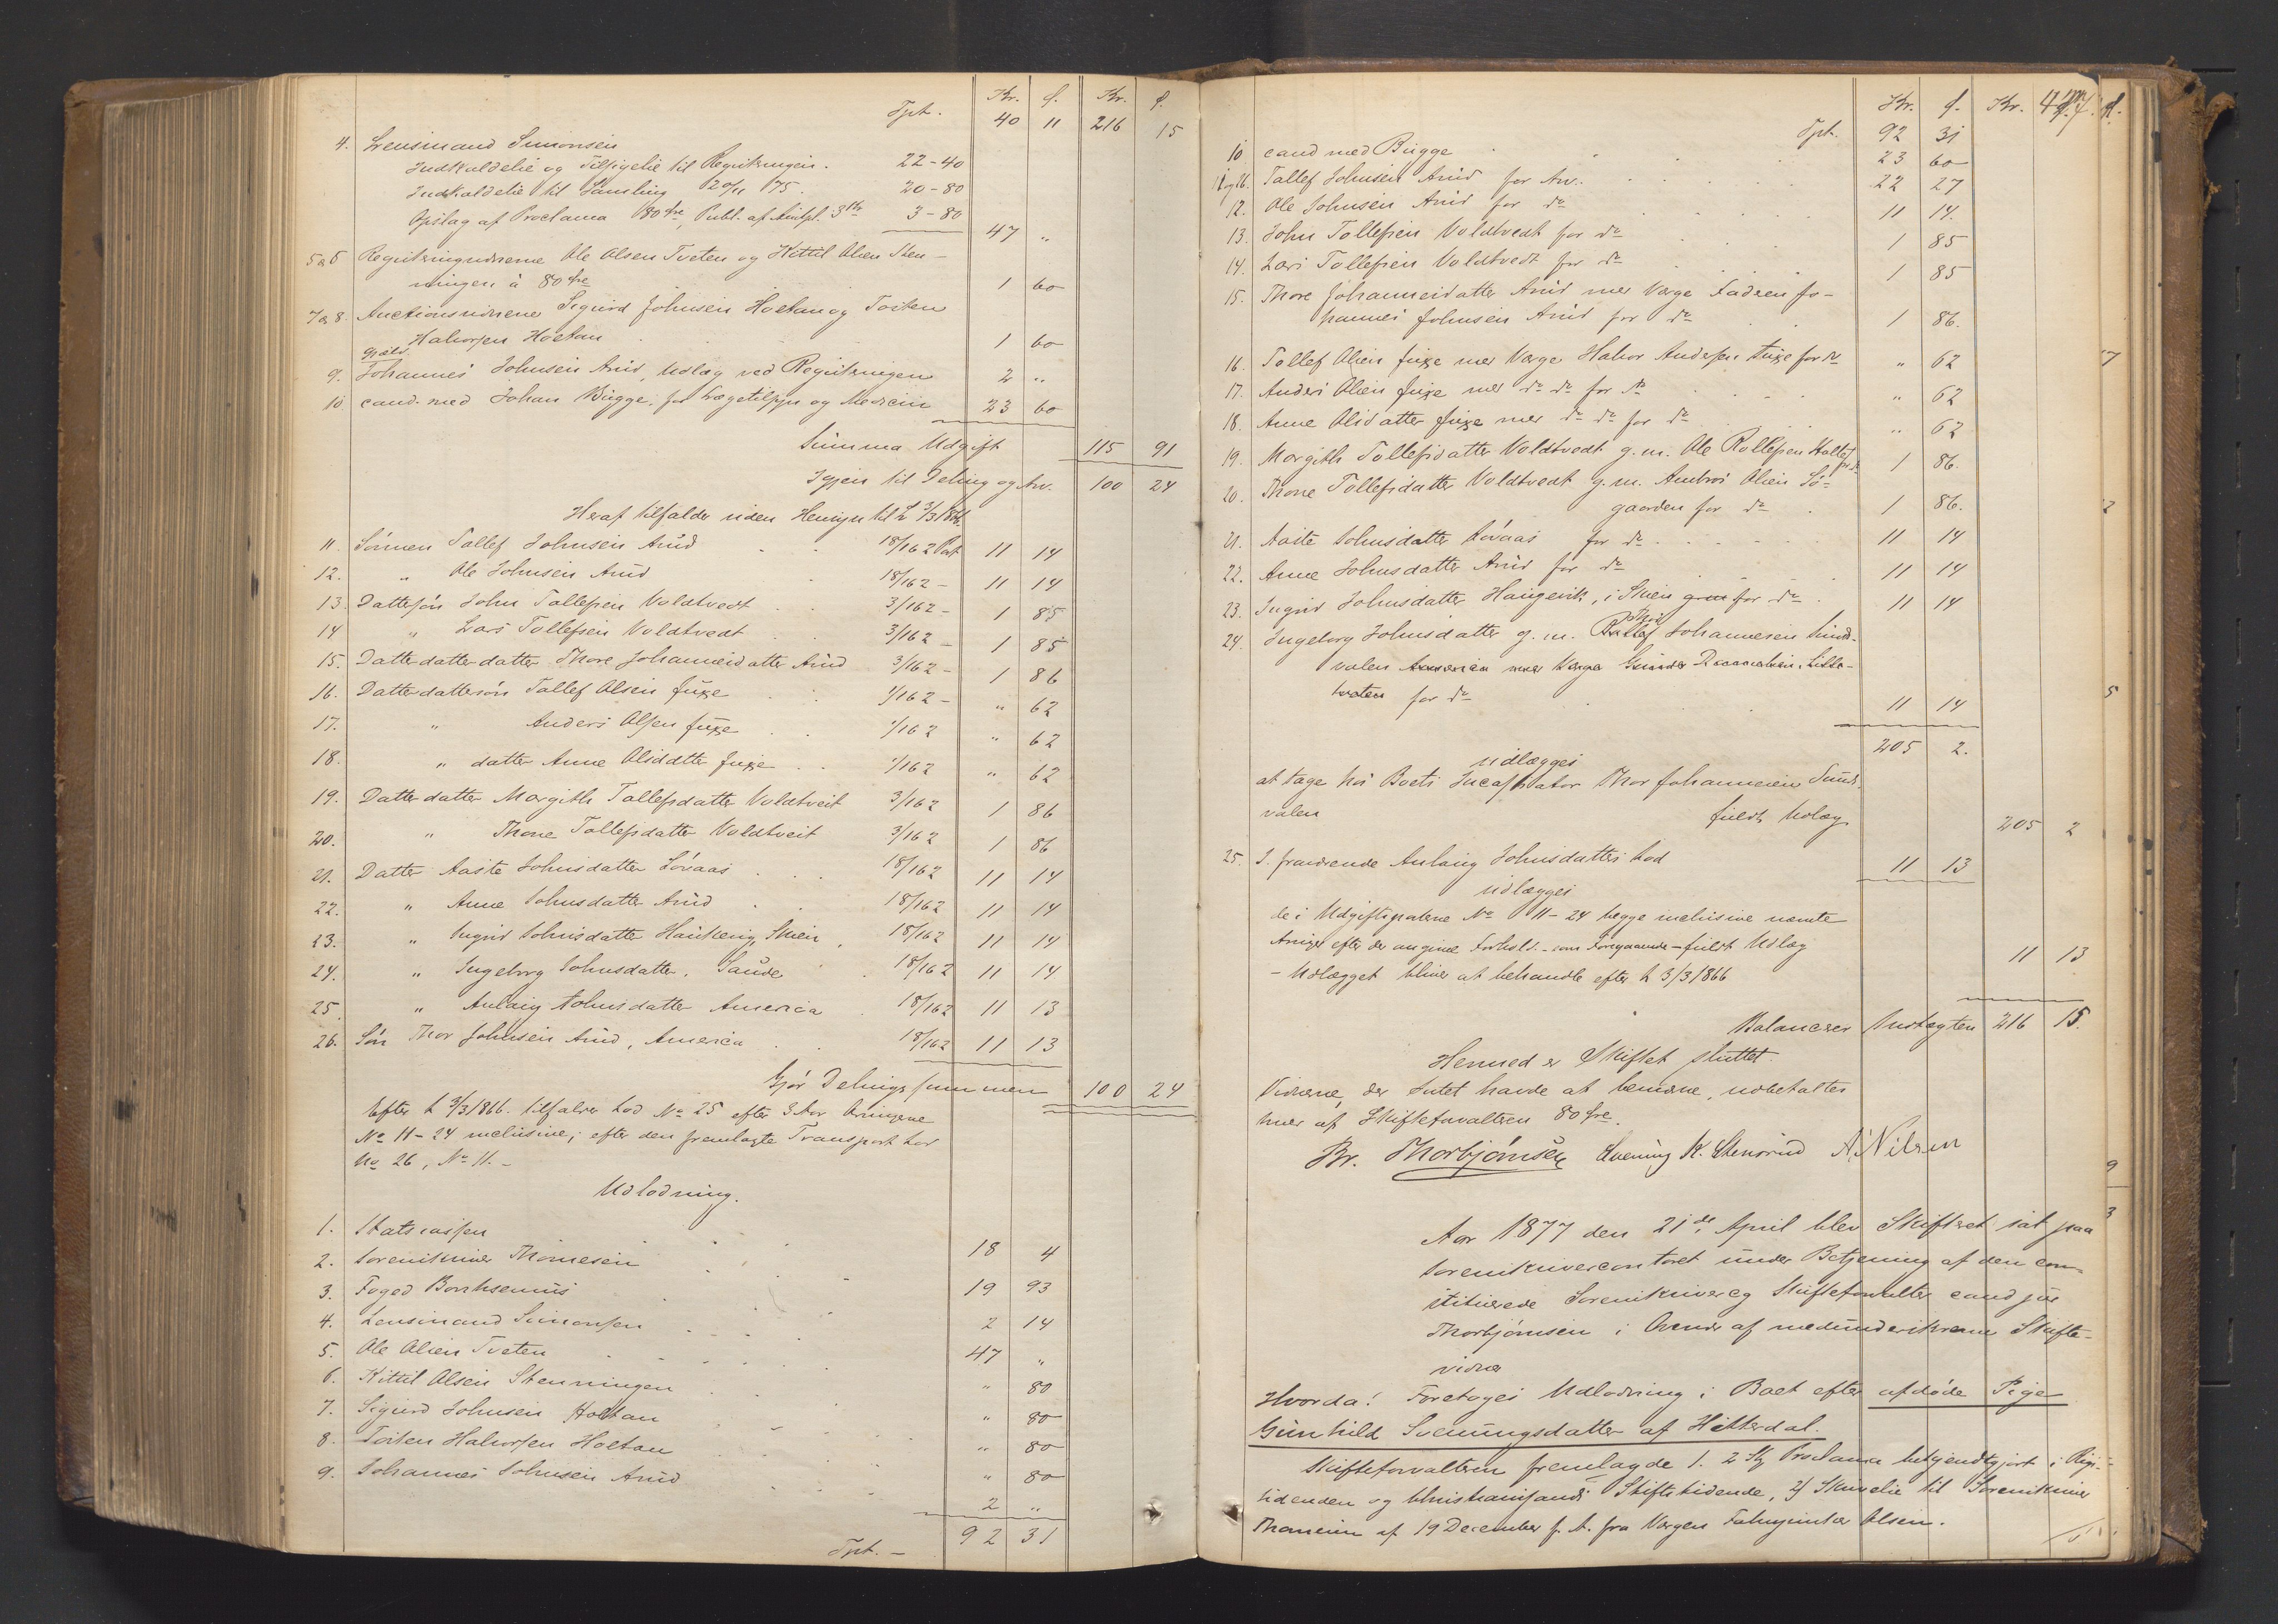 Kr. ø. Kr. ø.
Tpt. 40 11 216 15
4. Lensmand Simonsen
Indkaldelse og Tilsigelse til Registreringen. 22-40
Indkaldelse til Samling 20/11 75. 20-80
Opslag af Proclama 80 Øre, Publ. af Auctpl. 3 Kr 3-80
47 "
5 & 6 Registreringsvidnerne Ole Olsen Tveten og Kittil Olsen Sten-
ningen à 80 Øre 1 60
7 & 8. Auctionsvidnerne Sigurd Johnsen Hoetan og Tosten
Halvorsen Hoetan 1 60
Gjæld.
9. Johannes Johnsen Arud, Udlæg ved Registreringen 2 "
10 cand. med Johan Bugge, for Lægetilsyn og Medicin 23 60
Summa Udgift 115 91
Igjen til Deling og Arv. 100 24
Heraf tilfalder uden Hensyn til L 3/3 1866.
11. Sønnen Tollef Johnsen Arud 18/162 Part 11 14
12. " Ole Johnsen Arud 18/162 - 11 14
13. Dattersøn John Tollefsen Voldtvedt 3/162 - 1 85
14 " Lars Tollefsen Voldtvedt 3/162 - 1 85
15. Datterdatterdatter Thore Johannesdatter Arud 3/162 - 1 86
16. Datterdattersøn Tollef Olsen Juxe 1/162 - " 62
17. " Anders Olsen Juxe 1/162 " 62
18. " datter Anne Olsdatter Juxe 1/162 " 62
19. Datterdatter Margith Tollefsdatter Voldtveit 3/162 1 86
20. " Thone Tollefsdatter Voldtveit 3/162 1 86
21. Datter Aaste Johnsdatter Løvaas 18/162 11 14
22. " Anne Johnsdatter Arud 18/162 11 14
23. " Ingrid Johnsdatter Haukevig, Skien 18/162 11 14
24. " Ingeborg Johnsdatter. Saude 18/162 11 14
25. " Anlaug Johnsdatter America 18/162 11 13
26. Søn Thor Johnsen Arud, America 18/162 11 13
Gjør Delingssummen 100 24
Efter L 3/3 1866. tilfalder Lod No 25 efter 3 Aar Arvingerne
No 11-24 inclusive; efter den fremlagte Transport Lod
No 26, No 11.-
Udlodning.
1. Statscassen 18 4
2. Sorenskriver Thomesen 19 93
3. Foged Borchsenius 2 14
4. Lensmand Simonsen 47 "
5. Ole Olsen Tveten " 80
6. Kittil Olsen Stenningen " 80
7. Sigurd Johnsen Hoetan " 80
8. Tosten Halvorsen Hoetan " 80
9. Johannes Johnsen Arud 2 "
Tpt. - 92 31
Kr. ø. Kr. ø.
Tpt. 92 31
10 cand med Bugge 23 60
11 og 26. Tollef Johnsen Arud for Arv. 22 27
12. Ole Johnsen Arud for do 11 14.
13. John Tollefsen Voldtvedt for do 1 85
14. Lars Tollefsen Voldtvedt for do 1 85
15. Thore Johannesdatter Arud med Værge Faderen Jo-
hannes Johnsen Arud for do 1 86.
16. Tollef Olsen Juxe med Værge Halvor Andersen Juxe for do " 62
17. Anders Olsen Juxe med do do for do " 62
18. Anne Olsdatter Juxe med do do for do " 62
19. Margith Tollefsdatter Voldtvedt g. m. Ole Rollefsen 1 86.
20. Thone Tollefsdatter Voldtvedt g. m. Olsen Sø-
gaarden for do 1 86.
21. Aaste Johnsdatter Løvaas for do 11 14
22. Anne Johnsdatter Arud for do 11 14
23. Ingrid Johnsdatter Haugevik, i Skien for do 11 14
24. Ingeborg Johnsdatter g. m. Johannesen Sund-
valen America med Værge
for do 11 14
205 2.
udlægges
at tage hos Boets Incassator Thor Johannesen Sund-
valen fuldt Udlæg 205 2
25. I fraværende Anlaug Johnsdatters Lod 11 13
udlægges
de i Udgiftsposterne No 11-24 begge inclusive nævnte
Arvinger efter der angivne Forhold - som Foregaaende - fuldt Udlæg 11 13
- Udlægget bliver at behandle efter L 3/3 1866
Balancerer Indtægten 216 15.
Hermed er Skiftet sluttet.
Vidnerne, der Intet havde at bemærke, udbetaltes
hver af Skifteforvalteren 80 Øre.
Br. Thorbjørnsen Svening K. Stensrud A. Nilsen
Aar 1877 den 21de April blev Skifteret sat paa
Sorenskrivercontoret under Betjening af den con-
stituerede Sorenskriver og Skifteforvalter cand jur
Thorbjørnsen i Overvær af medunderskrevne Skifte-
vidner
Hvorda! Foretoges Udlodning i Boet efter afdøde Pige
Gunhild Sveinungsdatter af Hitterdal.
Skifteforvalteren fremlagde 1. 2 St Proclama bekjendtgjort i Rigs-
tidenden og Christianssands Stiftstidende, 2) Skrivelse til Sorenskriver
Thomesen af 19 December f. A. fra Værgen Olsen.